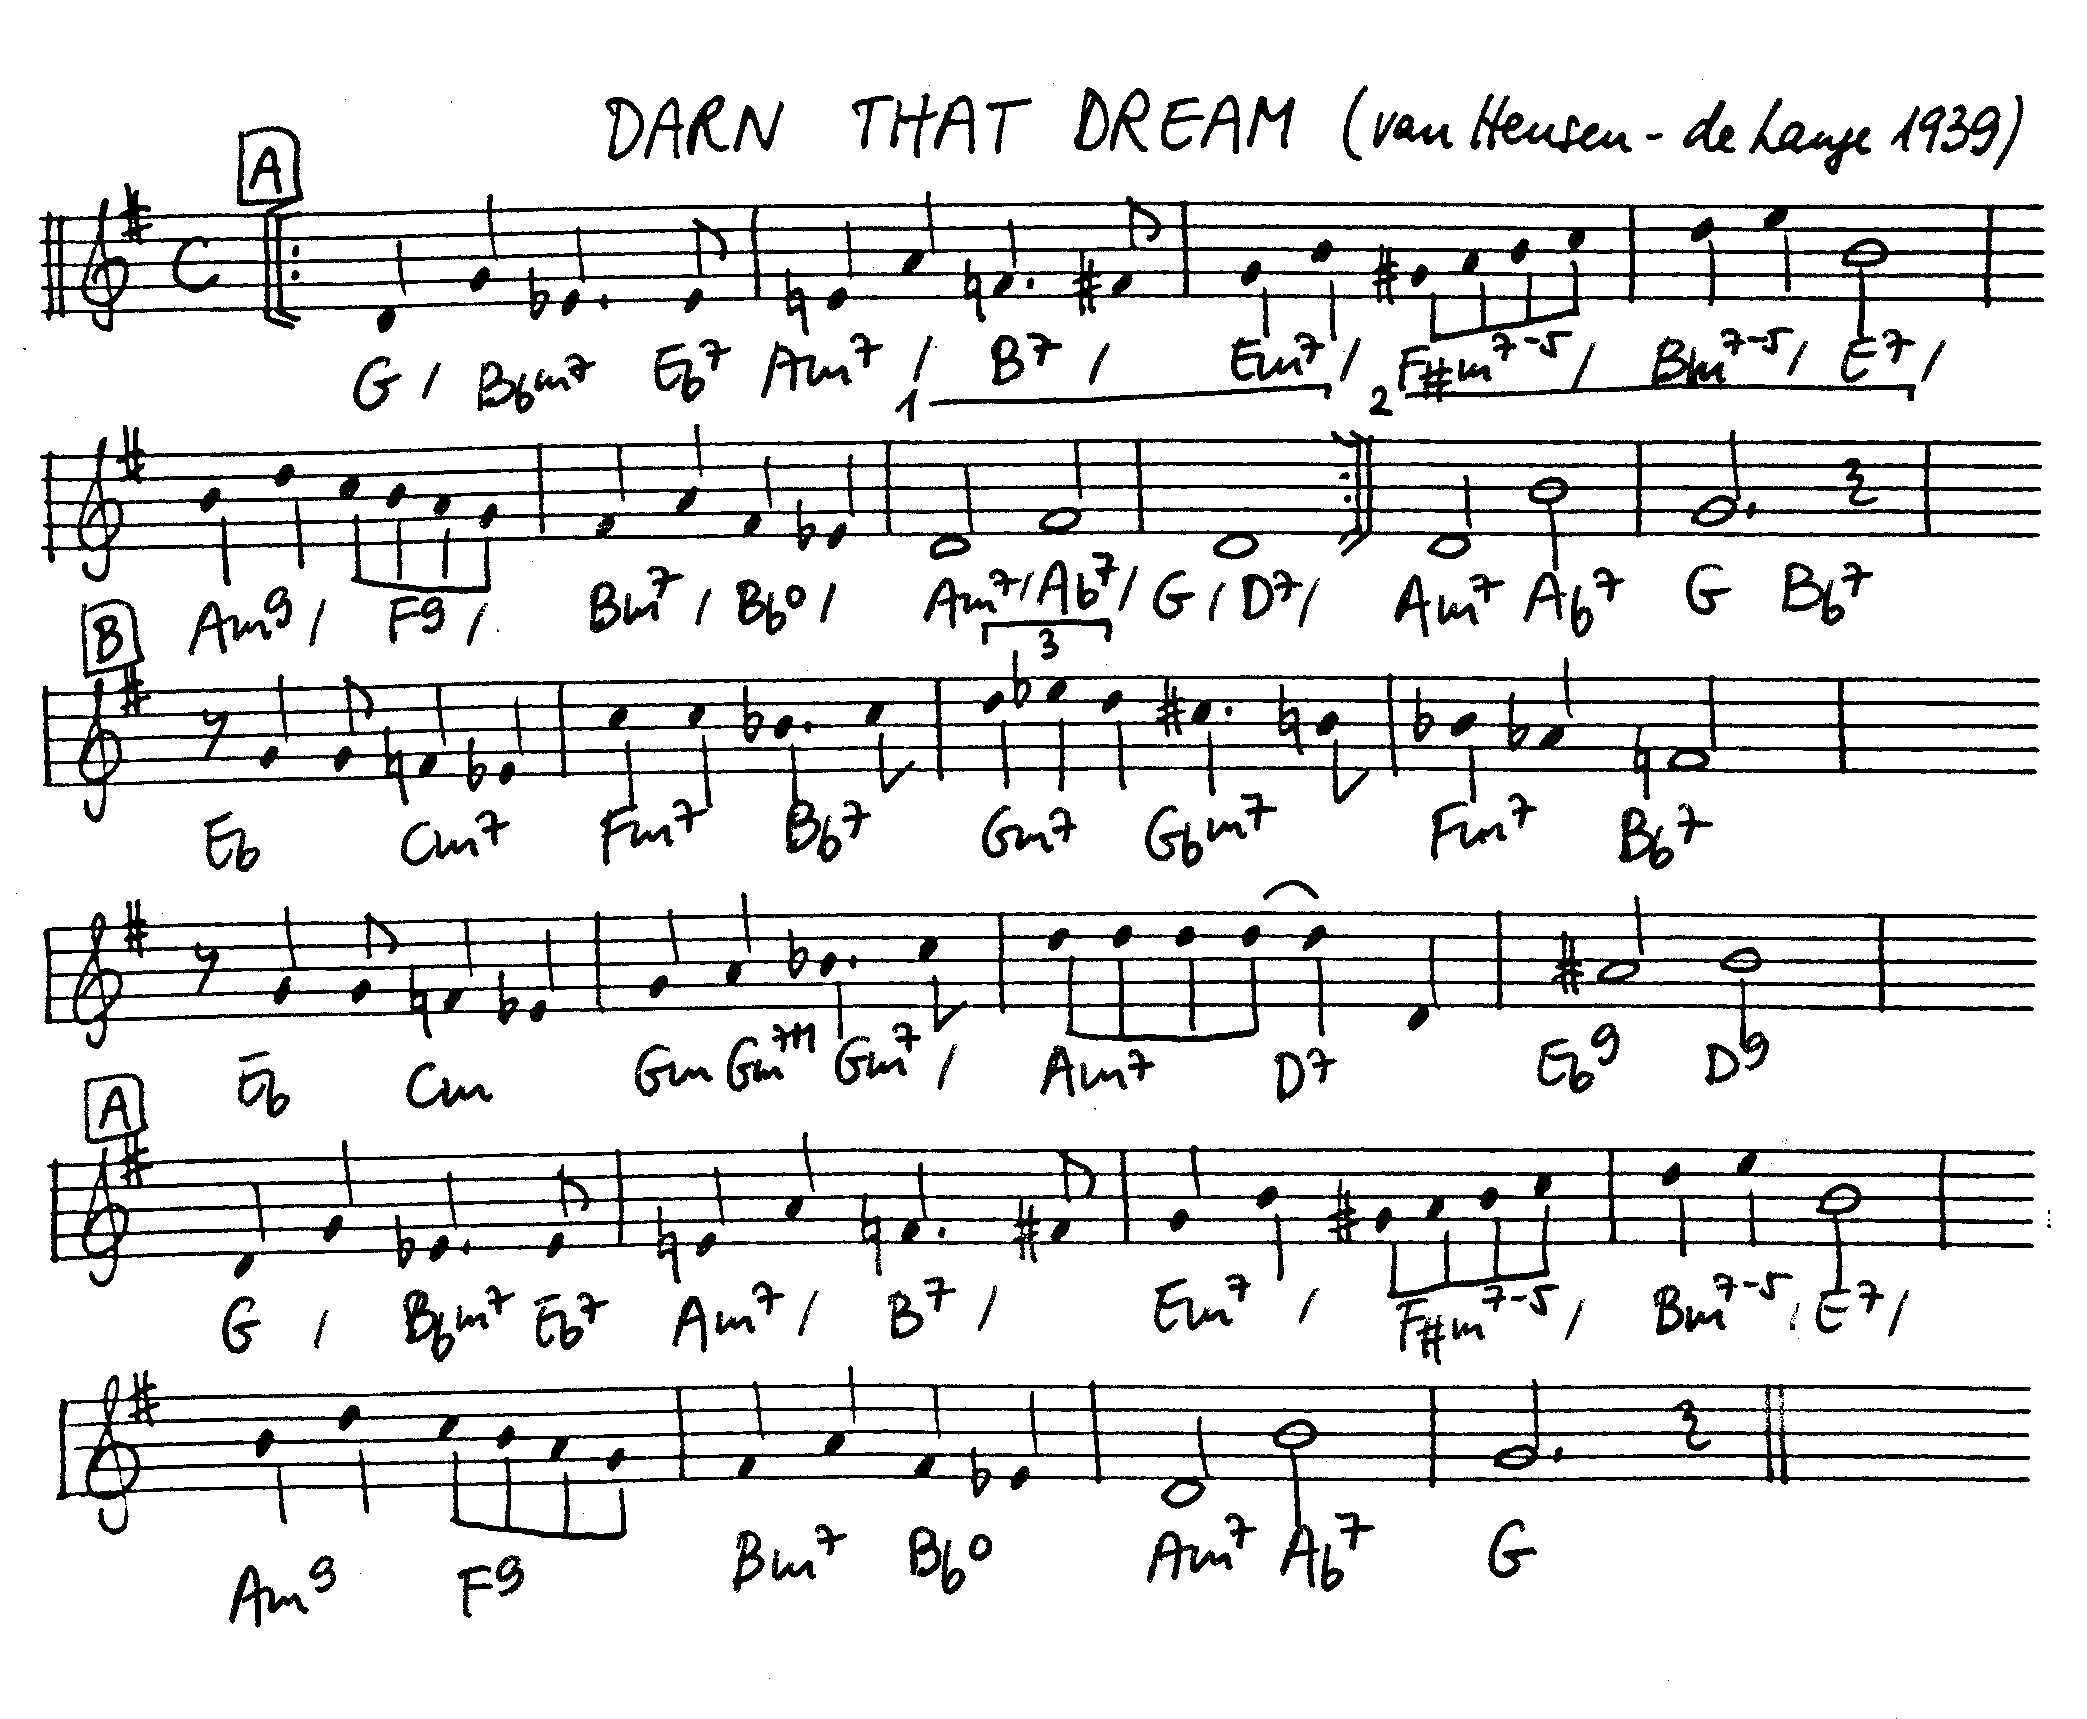 DARN THAT DREAM (van Heusen - de Lange 1939)
A
G / Bbm7 Eb7 Am7 / B7 / Em7 / F#m7-5 / Bm7-5 / E7 /
1 2
Am9 / F9 / Bm7 / Bb° / Am7 / Ab7 / G / D7 / Am7 Ab7 G Bb7
B
3
Eb Cm7 Fm7 Bb7 Gm7 Gbm7 Fm7 Bb7
Eb Cm Gm Gm7+ Gm7 / Am7 D7 Eb9 D9
A
G / Bbm7 Eb7 Am7 / B7 / Em7 / F#m7-5 / Bm7-5 / E7 /
Am9 F9 Bm7 Bb° Am7 Ab7 G